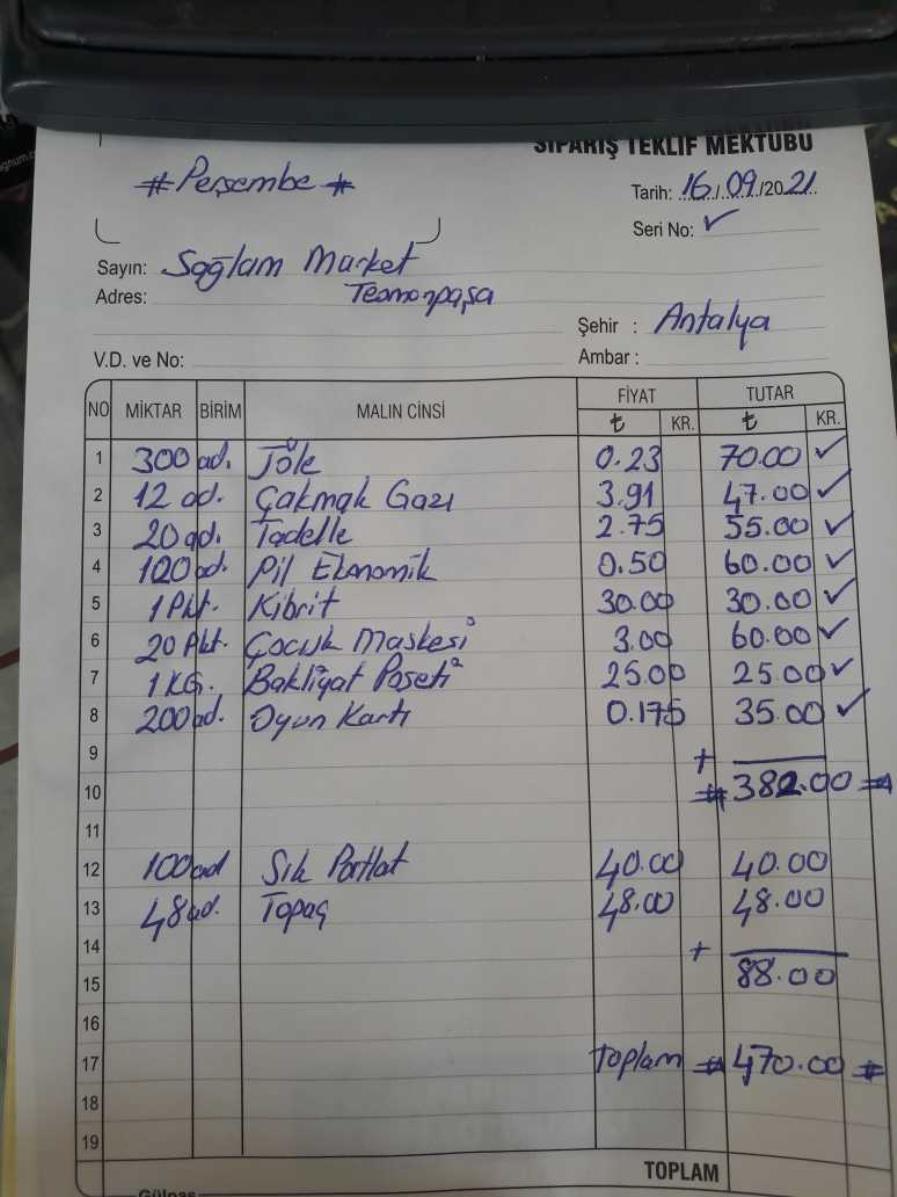 SİPARİŞ TEKLİF MEKTUBU
# Perşembe #
Tarih: 16/09/2021
Seri No: ✓
Sayın: Sağlam Market
Adres: Teomanpaşa
Şehir : Antalya
V.D. ve No: Ambar :
NO MİKTAR BİRİM MALIN CİNSİ FİYAT TUTAR
₺ KR. ₺ KR.
1 300 ad. Jöle 0.23 70.00 ✓
2 12 ad. Çakmak Gazı 3.91 47.00 ✓
3 20 ad. Tadelle 2.75 55.00 ✓
4 120 ad. Pil Ekonomik 0.50 60.00 ✓
5 1 Pkt. Kibrit 30.00 30.00 ✓
6 20 Pkt. Çocuk Maskesi 3.00 60.00 ✓
7 1 KG. Bakliyat Poşeti 25.00 25.00 ✓
8 200 ad. Oyun Kartı 0.175 35.00 ✓
9 +
10 # 382.00 #
11
12 100 ad Sık Patlat 40.00 40.00
13 48 ad. Topaç 48.00 48.00
14 +
15 88.00
16
17 Toplam # 470.00 #
18
19
TOPLAM
Gülpaş